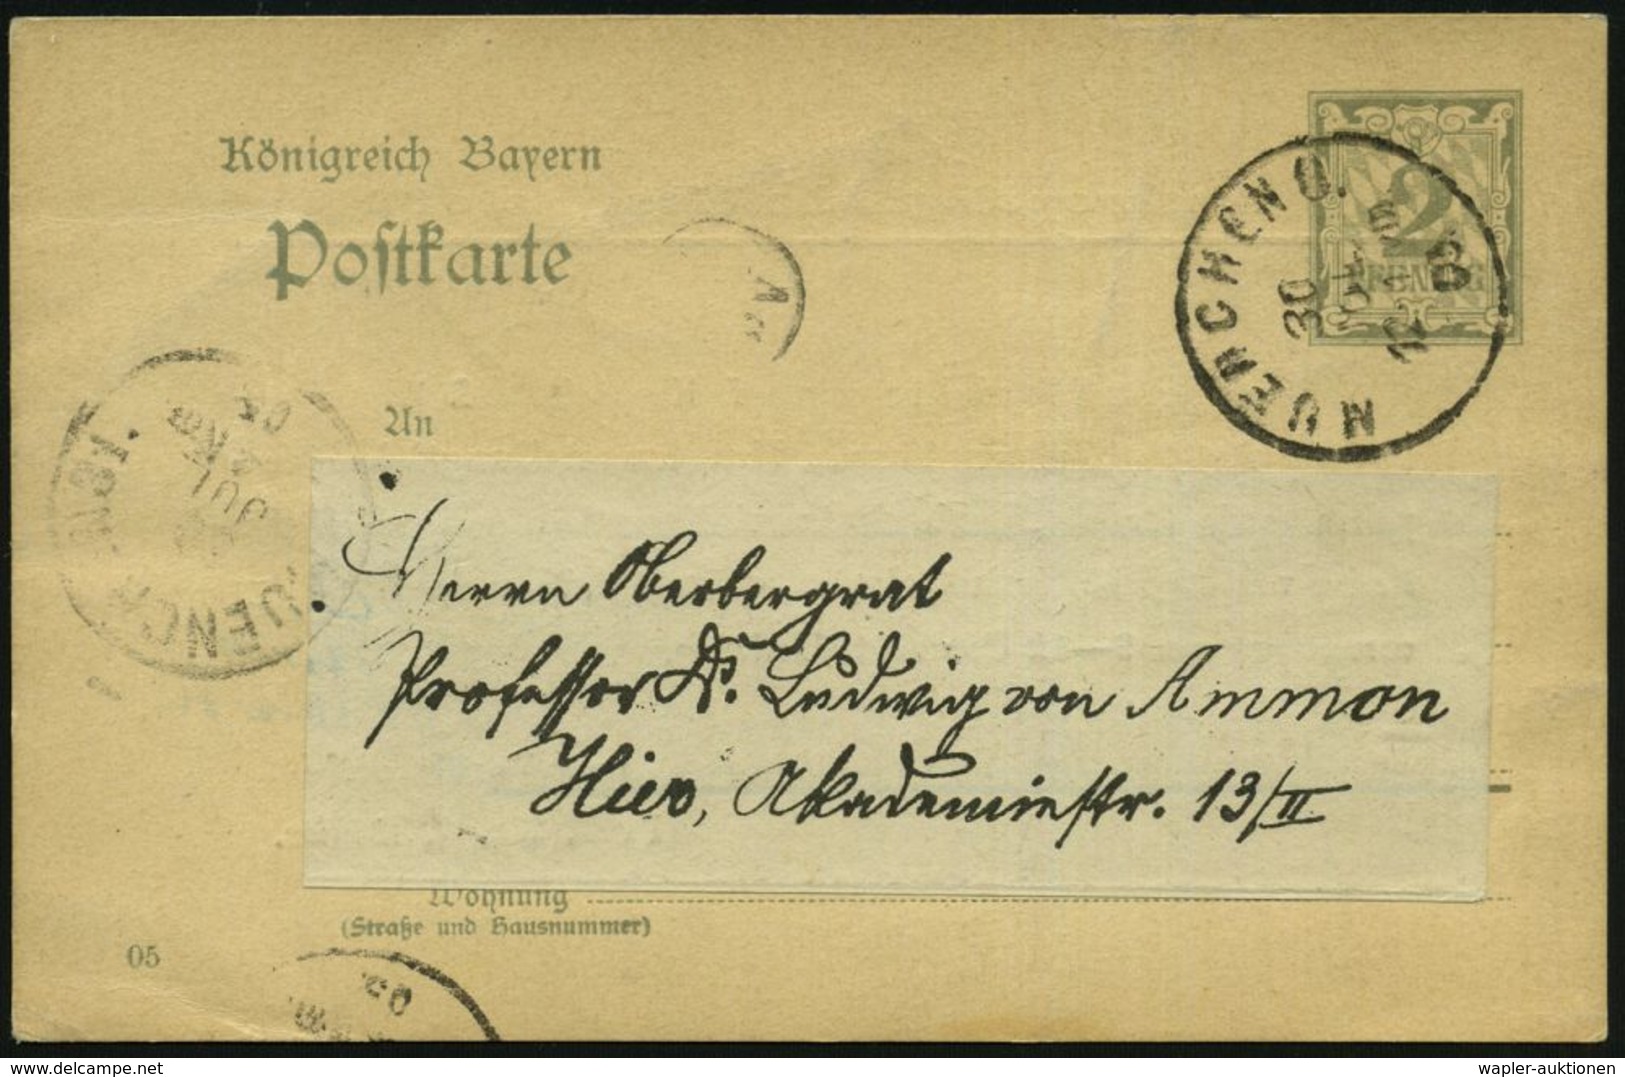 Königreich Bayern
Postkarte
2
PFENNIG
MUENCHEN O.
30
An
Herrn Oberbergrat
Professor Dr. Ludwig von Ammon
Hier, Akademiestr. 13/II
Wohnung
(Straße und Hausnummer)
05
JUL
05
05.
www.delcampe.net
wapler-auktionen